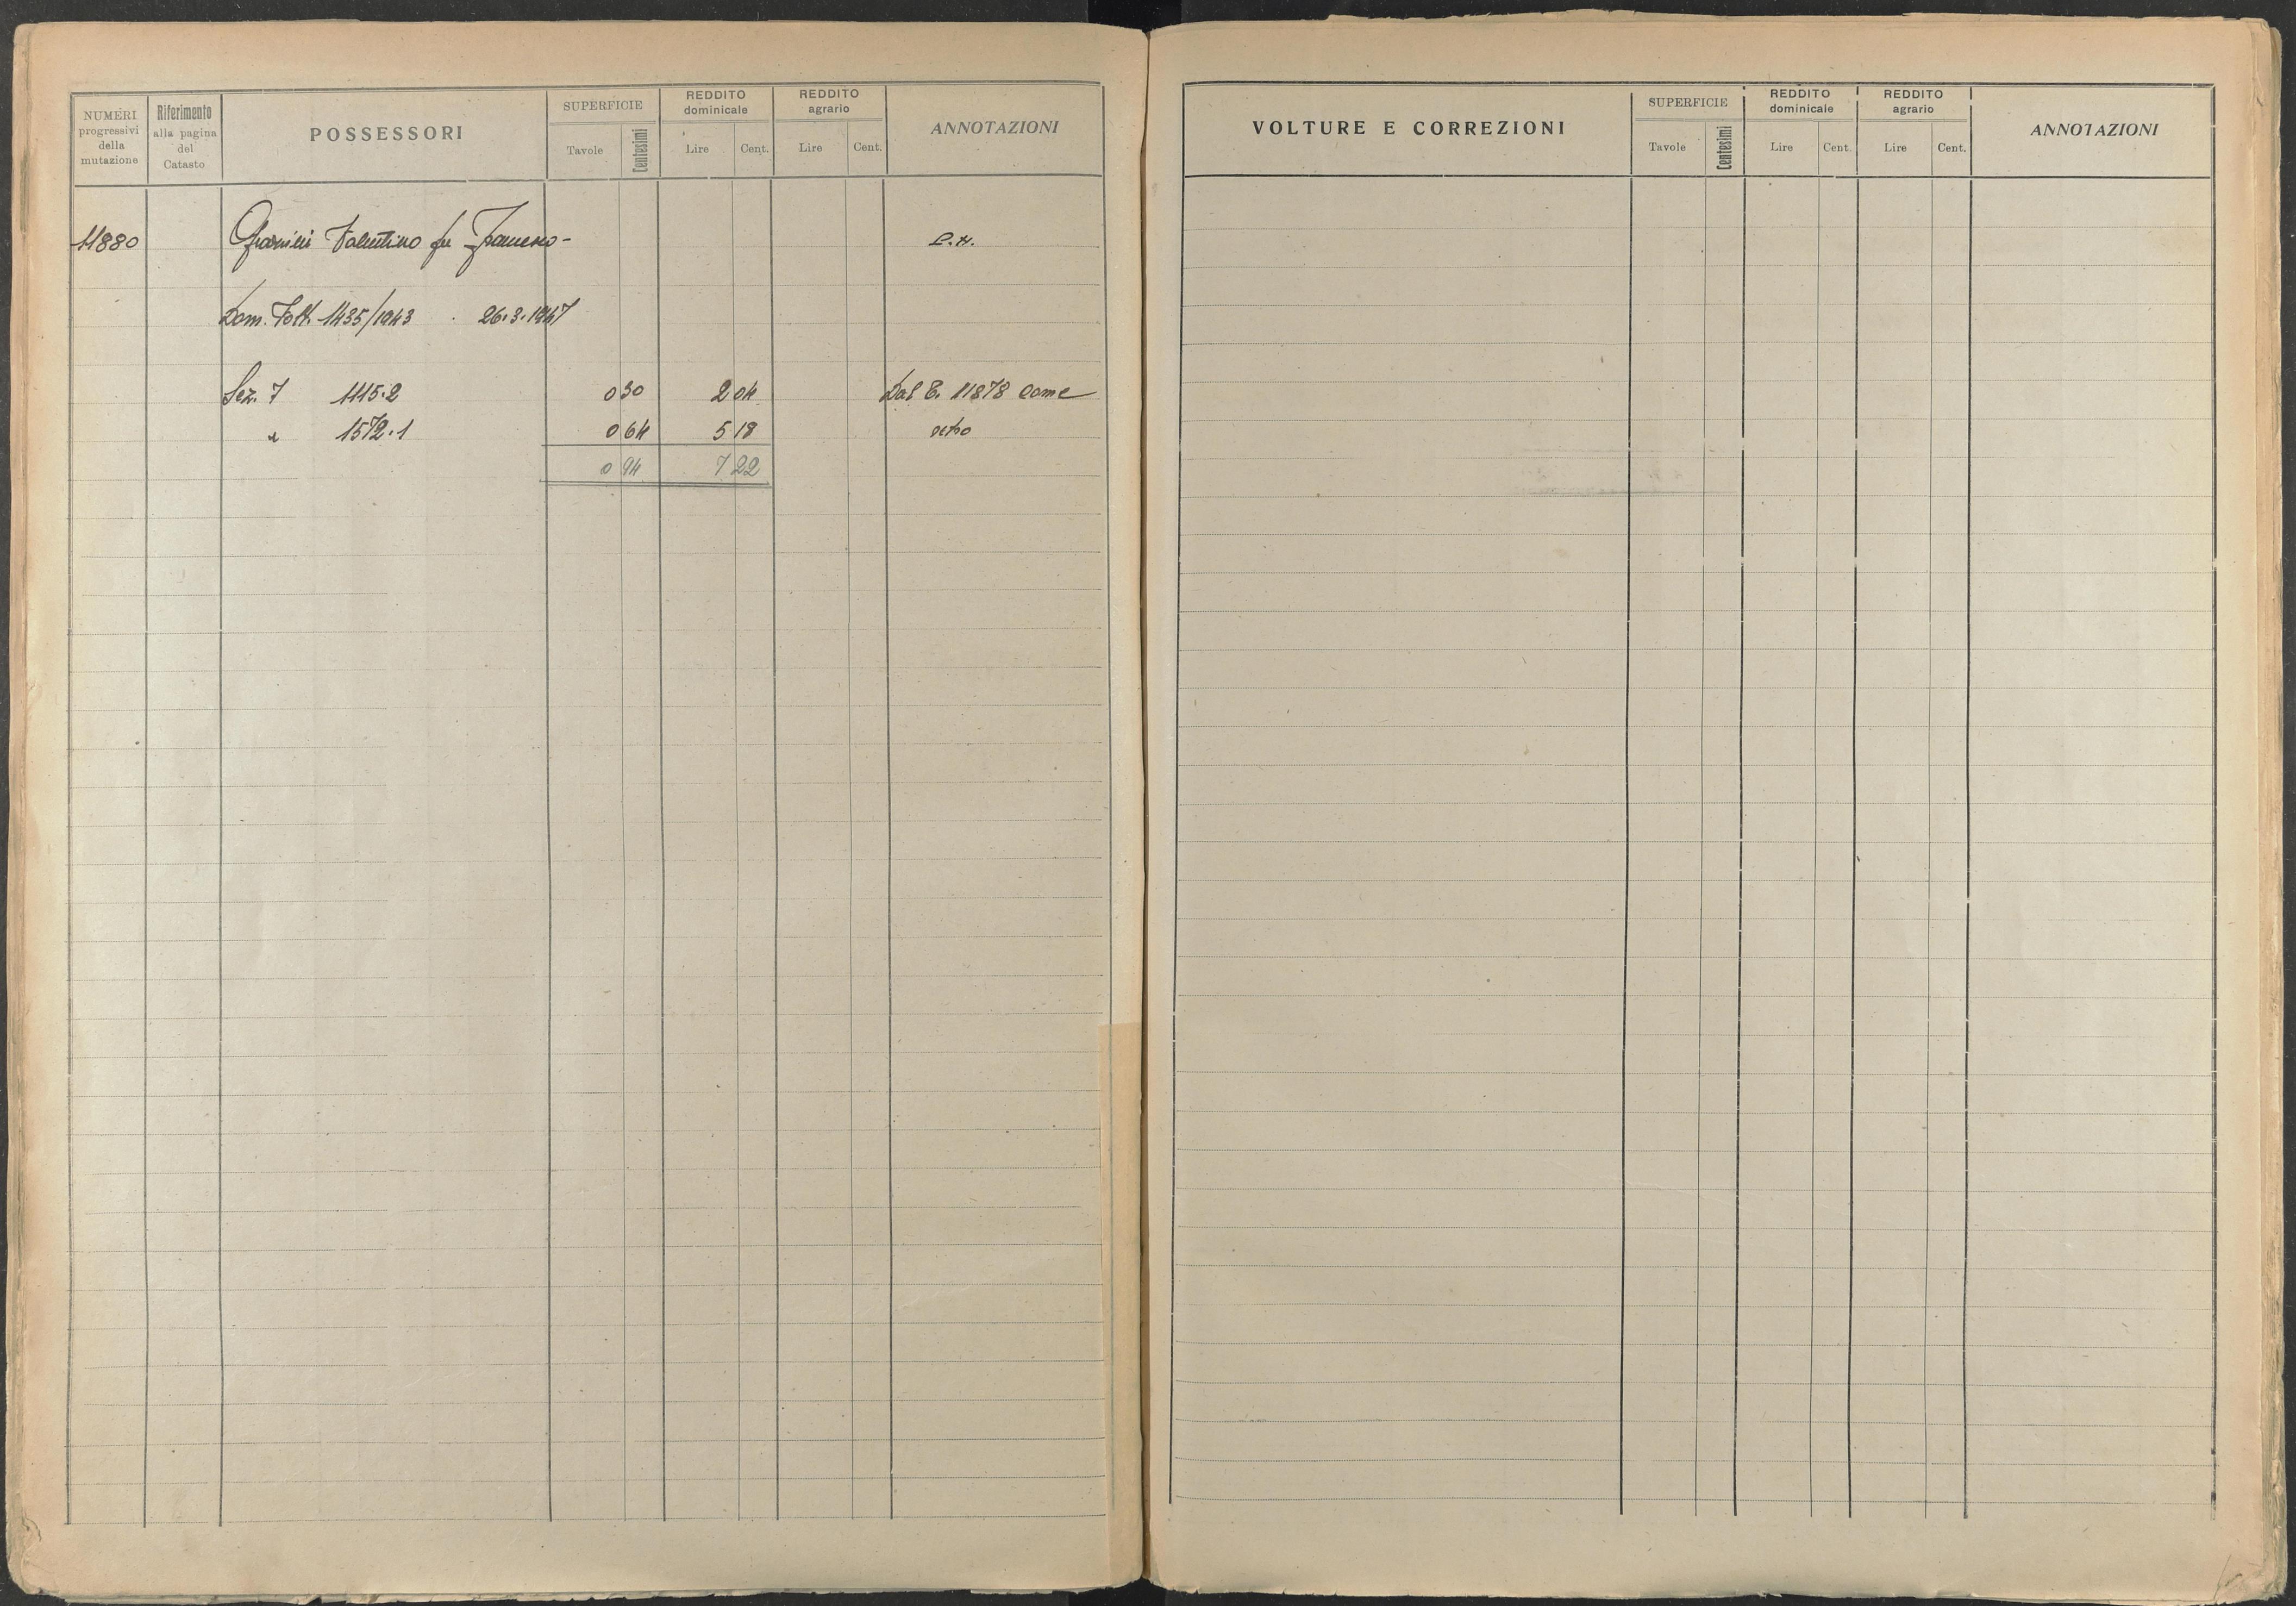 NUMERI progressivi della mutazione
Riferimento alla pagina del Catasto
POSSESSORI
SUPERFICIE
Tavole Centesimi
REDDITO dominicale
Lire Cent.
REDDITO agrario
Lire Cent.
ANNOTAZIONI
11880 Valentino fu Francesco -
Dom. Volt. 1435/1943 . 26.3.1947
Sez. 7 1115.2 0 30 2 04 Dal E. 11878 come
" 1572.1 0 64 5 18 retro
0 94 7 22
VOLTURE E CORREZIONI
SUPERFICIE
Tavole Centesimi
REDDITO dominicale
Lire Cent.
REDDITO agrario
Lire Cent.
ANNOTAZIONI